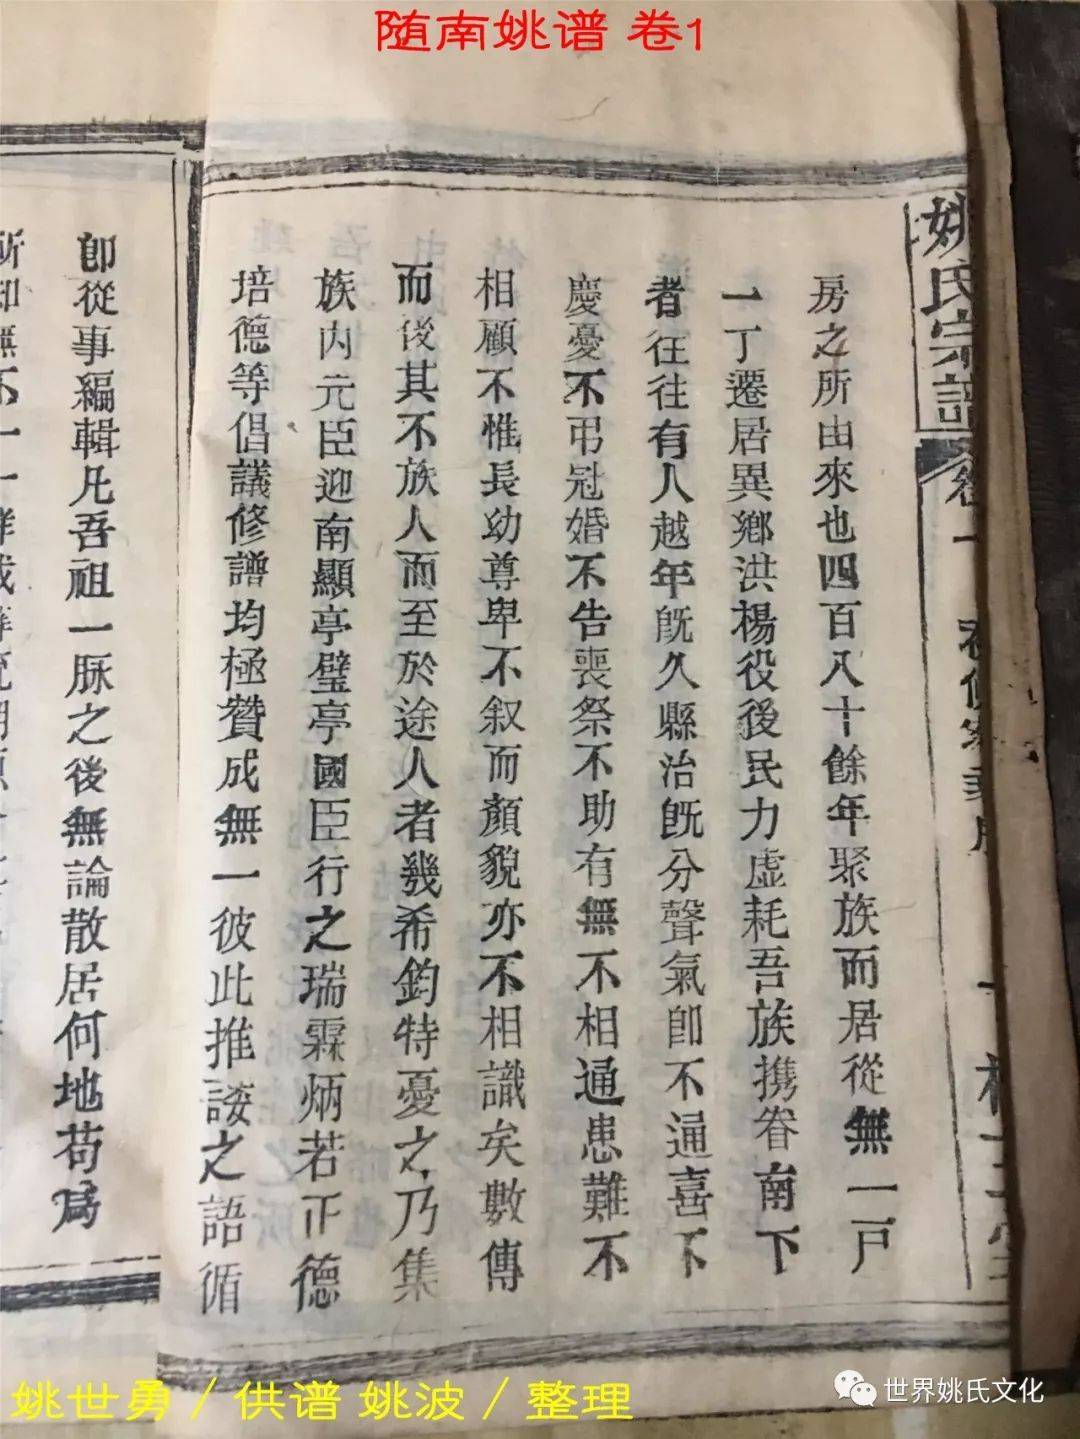 随南姚谱 卷1
姚氏宗譜
房之所由來也四百八十餘年聚族而居從無一戸
一丁遷居異鄉洪楊役後民力虛耗吾族携眷南下
者往往有人越年既久縣治既分聲氣卽不通喜不
慶憂不弔冠婚不告喪祭不助有無不相通患難不
相顧不惟長幼尊卑不叙而顏貌亦不相識矣數傳
而後其不族人而至於途人者幾希鈞特憂之乃集
族內元臣迎南顯亭璧亭國臣行之瑞霖炳若正德
培德等倡議修譜均極贊成無一彼此推諉之語循
卽從事編輯凡吾祖一脉之後無論散居何地苟爲
姚世勇/供谱 姚波/整理
世界姚氏文化